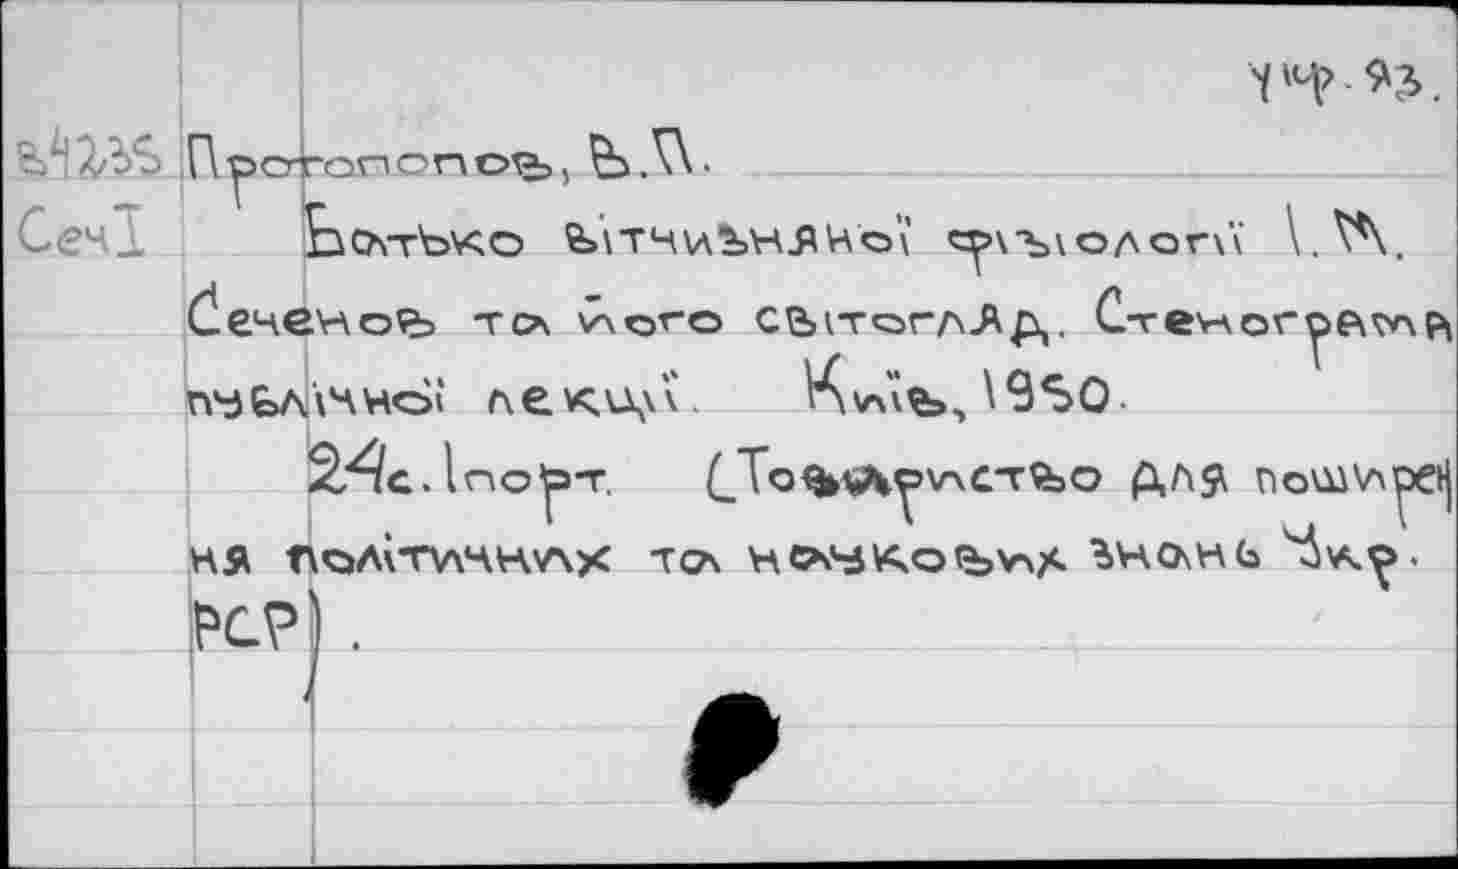 Укр. яз.
Протопопов, В.П.
Сеч1 Батько вітчизняної фізіології І.М.
Сеченов та його світогляд. Стенограма
публічної лекції. Київ, 1950.
24с. 1порт. (Товариство для поширен
ня політичних та наукових знань Укр.
РСР).